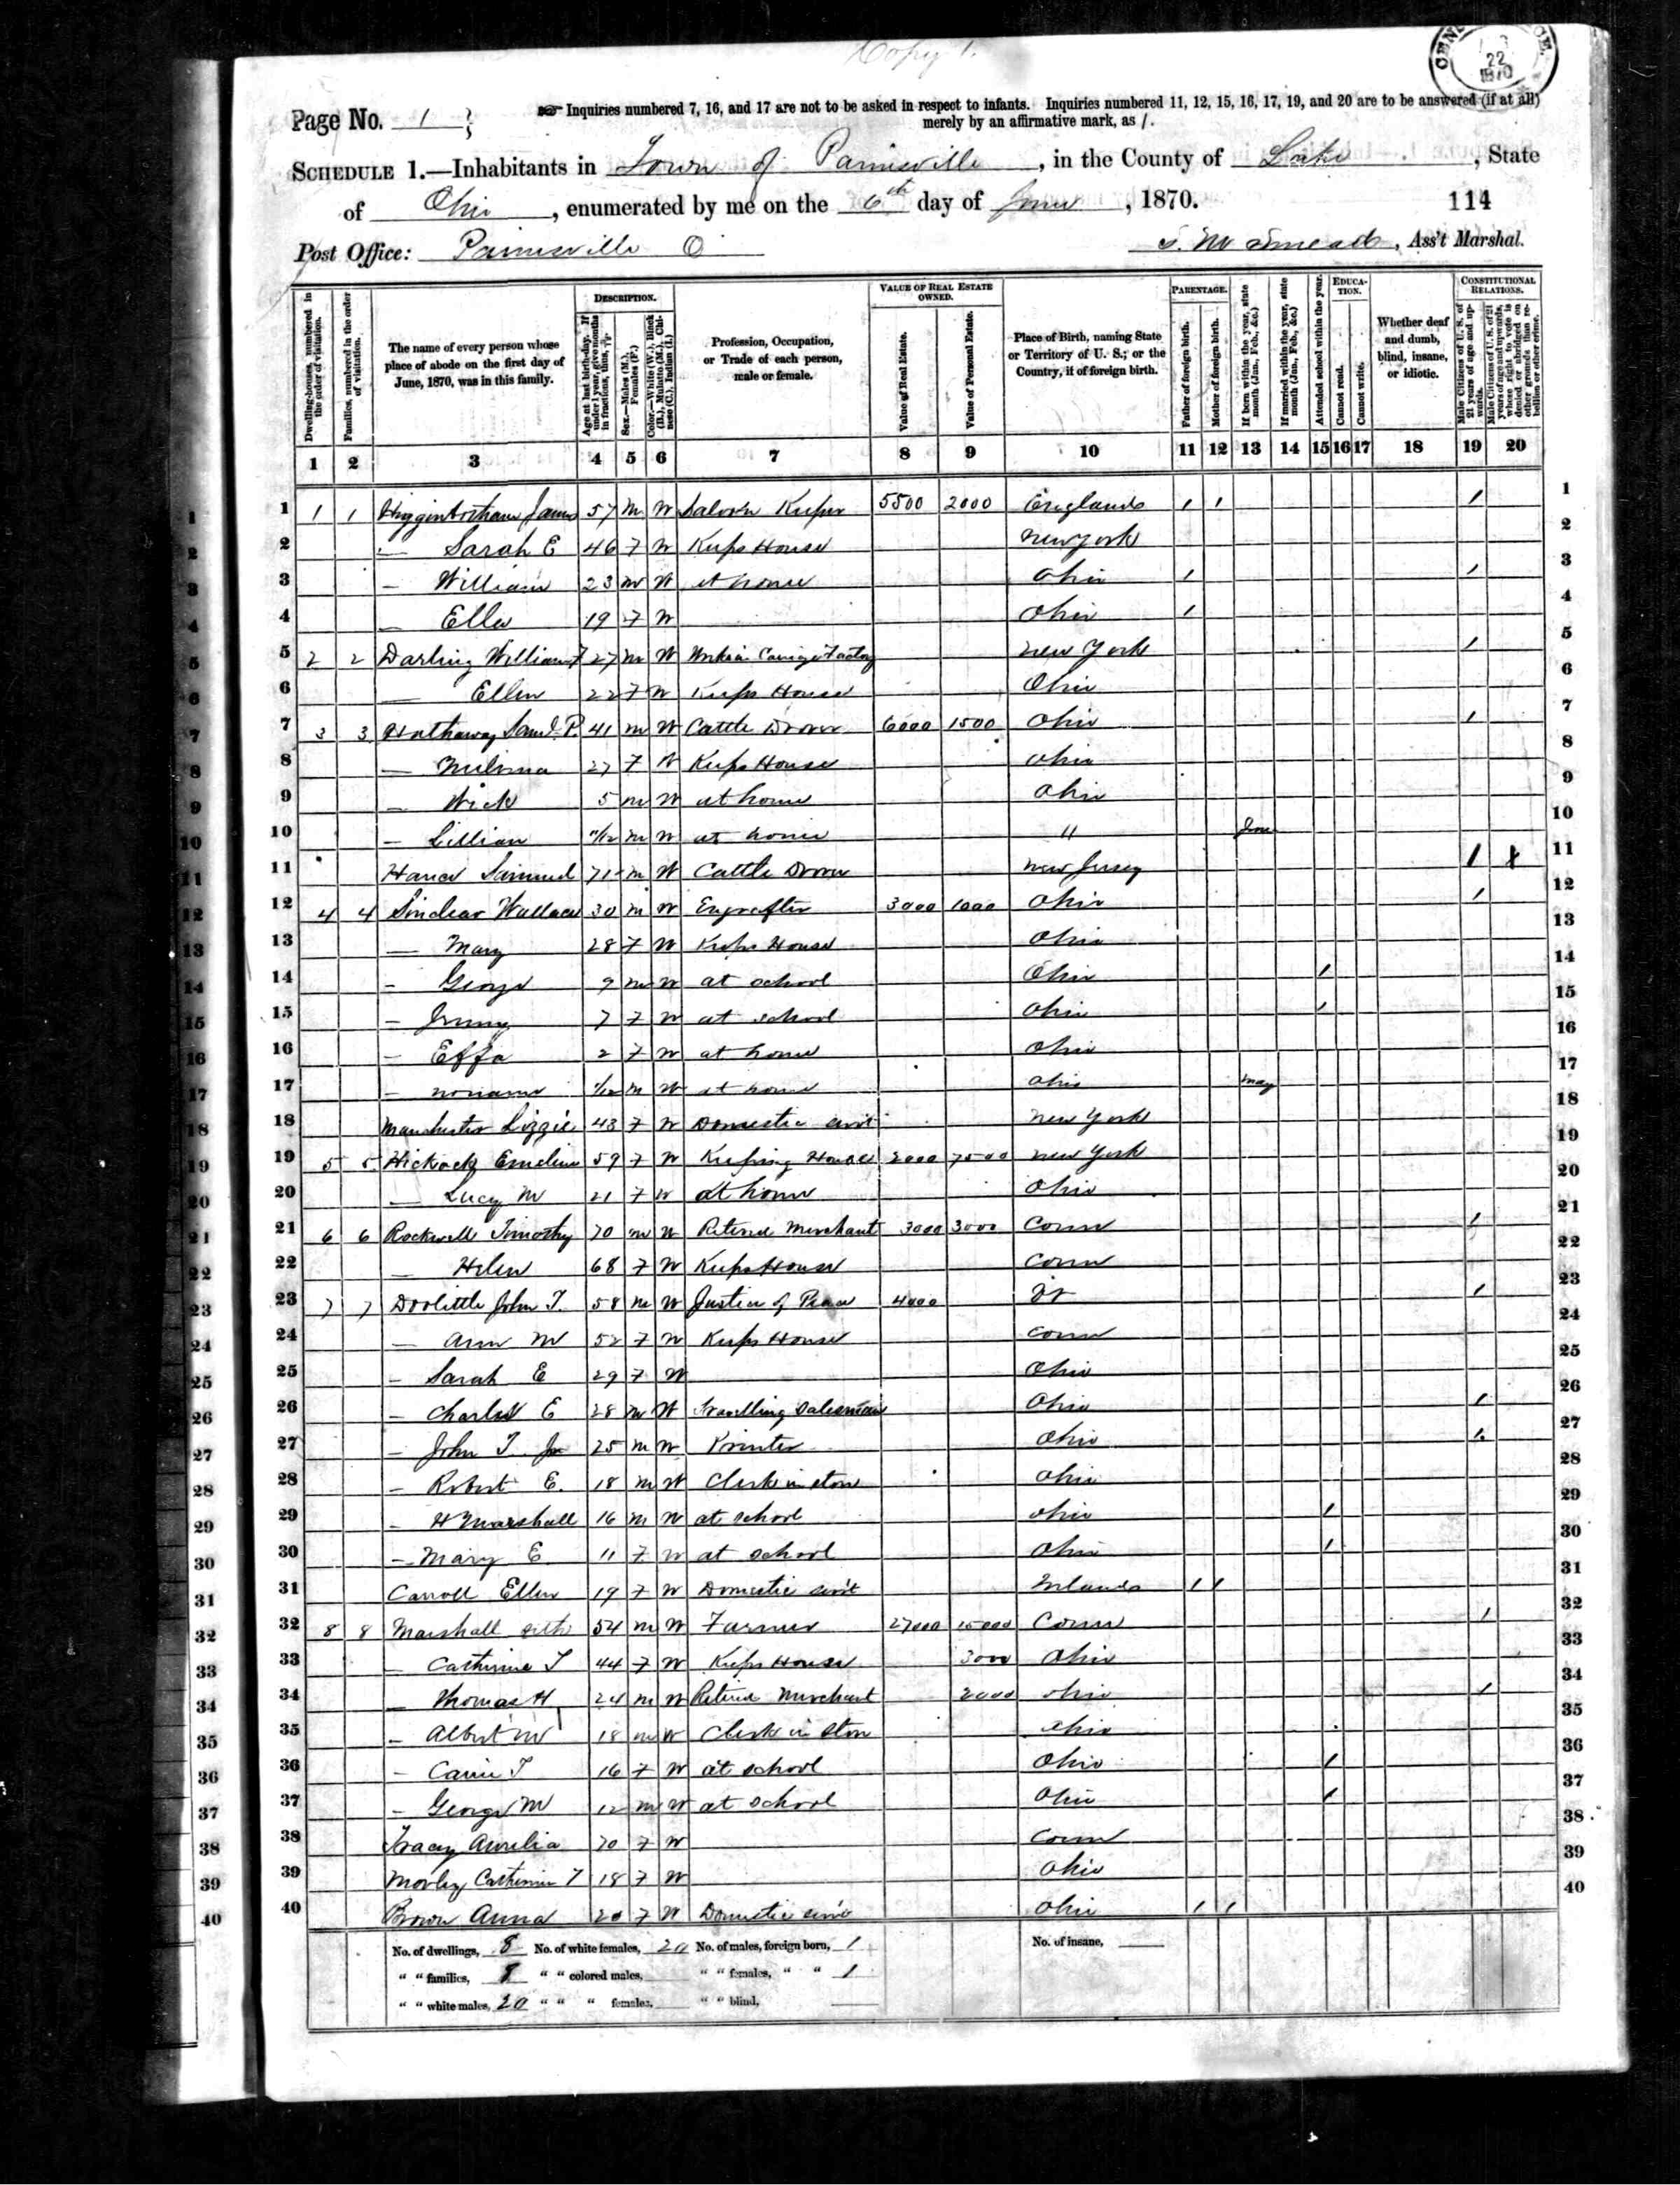 Copy 1.
CEN CE.
22
1870
Page No. 1
Inquiries numbered 7, 16, and 17 are not to be asked in respect to infants. Inquiries numbered 11, 12, 15, 16, 17, 19, and 20 are to be answered (if at all)
merely by an affirmative mark, as /.
SCHEDULE 1.—Inhabitants in Town of Painesville, in the County of Lake, State
of Ohio, enumerated by me on the 6th day of June, 1870.
114
Post Office: Painesville O
S. M. Smead, Ass't Marshal.
Dwelling-houses, numbered in the order of visitation.
Families, numbered in the order of visitation.
The name of every person whose place of abode on the first day of June, 1870, was in this family.
DESCRIPTION.
Age at last birth-day. If under 1 year, give months in fractions, thus, 3/12.
Sex.—Males (M.), Females (F.)
Color.—White (W.), Black (B.), Mulatto (M.), Chinese (C.), Indian (I.)
Profession, Occupation, or Trade of each person, male or female.
VALUE OF REAL ESTATE OWNED.
Value of Real Estate.
Value of Personal Estate.
Place of Birth, naming State or Territory of U. S.; or the Country, if of foreign birth.
PARENTAGE.
Father of foreign birth.
Mother of foreign birth.
If born within the year, state month (Jan., Feb., &c.)
If married within the year, state month (Jan., Feb., &c.)
Attended school within the year.
EDUCATION.
Cannot read.
Cannot write.
Whether deaf and dumb, blind, insane, or idiotic.
CONSTITUTIONAL RELATIONS.
Male Citizens of U. S. of 21 years of age and upwards.
Male Citizens of U. S. of 21 years of age and upwards, whose right to vote is denied or abridged on other grounds than rebellion or other crime.
1 2 3 4 5 6 7 8 9 10 11 12 13 14 15 16 17 18 19 20
1 1 1 Higginbotham James 57 M W Saloon Keeper 5500 2000 England 1 1 1 1
2 — Sarah E 46 F W Keeps House New York 2
3 — William 23 M W at home Ohio 1 1 3
4 — Ella 19 F W Ohio 1 4
5 2 2 Darling William F 27 M W Works in Carriage Factory New York 1 5
6 — Ellen 22 F W Keeps House Ohio 6
7 3 3 Hathaway Saml. P. 41 M W Cattle Drover 6000 1500 Ohio 1 7
8 — 27 F W Keeps House Ohio 8
9 — Wick 5 M W at home Ohio 9
10 — Lillian 11/12 M W at home " June 10
11 Samuel 71 M W Cattle Drover New Jersey 1 11
12 4 4 Sinclear Wallace 30 M W 3000 1000 Ohio 1 12
13 — Mary 28 F W Keeps House Ohio 13
14 — George 9 M W at school Ohio 1 14
15 — Jenny 7 F W at school Ohio 1 15
16 — Effa 2 F W at home Ohio 16
17 — no name 1/12 M W at home Ohio May 17
18 Manchester Lizzie 43 F W Domestic servt New York 18
19 5 5 Hickock Emeline 59 F W Keeping House 2000 7500 New York 19
20 — Lucy M 21 F W at home Ohio 20
21 6 6 Rockwell Timothy 70 M W Retired Merchant 3000 3000 Conn 1 21
22 — Helen 68 F W Keeps House Conn 22
23 7 7 Doolittle John T. 58 M W Justice of Peace 4000 Vt 1 23
24 — Ann M 52 F W Keeps House Conn 24
25 — Sarah E 29 F W Ohio 25
26 — Charles E 28 M W Travelling Salesman Ohio 1 26
27 — John T Jr 25 M W Printer Ohio 1 27
28 — Robert E. 18 M W Clerk in store Ohio 28
29 — H Marshall 16 M W at school Ohio 1 29
30 — Mary E 11 F W at school Ohio 1 30
31 Carroll Ellen 19 F W Domestic servt Ireland 1 1 31
32 8 8 Marshall Seth 54 M W Farmer 27000 15000 Conn 1 32
33 — Catherine T 44 F W Keeps House 3000 Ohio 33
34 — Thomas H 24 M W Retired Merchant 2000 Ohio 1 34
35 — Albert M 18 M W Clerk in store Ohio 35
36 — Carrie T 16 F W at school Ohio 1 36
37 — George M 12 M W at school Ohio 1 37
38 Tracy Aurelia 70 F W Conn 38
39 Morley Catherine T 18 F W Ohio 39
40 Brown Anna 20 F W Domestic servt Ohio 1 1 40
No. of dwellings, 8 No. of white females, 20 No. of males, foreign born, 1 No. of insane,
" " families, 8 " " colored males, " " females, " " 1
" " white males, 20 " " " females, " " blind,